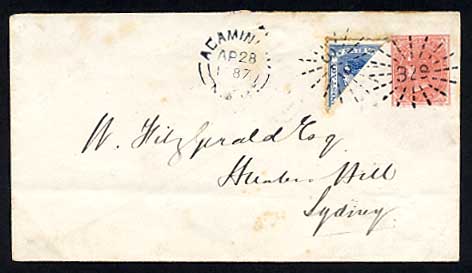 ADAMIN
AP 28
87
POSTAGE
376
W. Fitzgerald Esq.
Hunters Hill
Sydney.